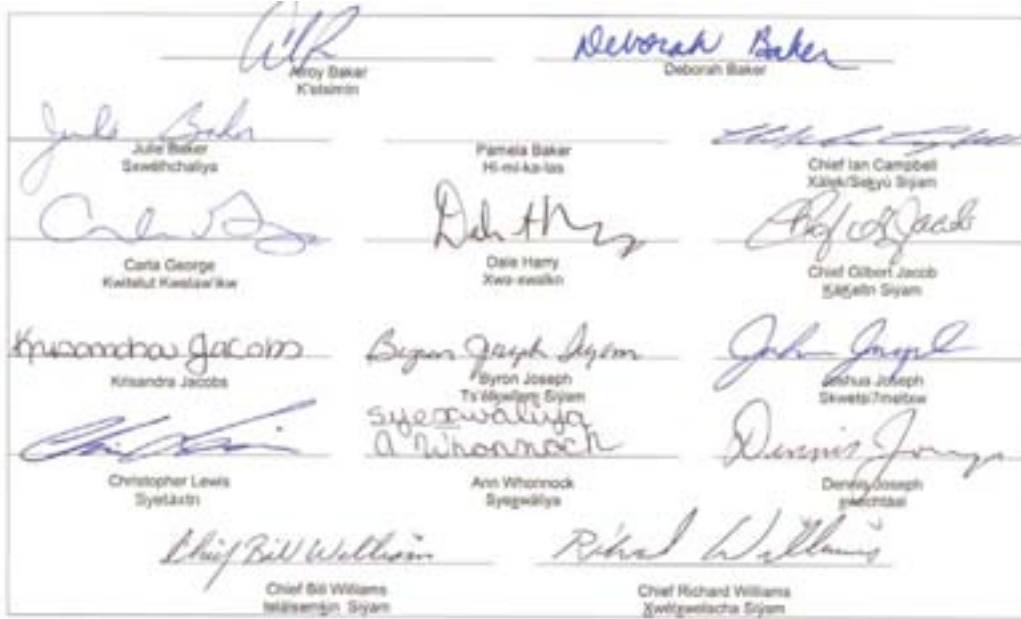 Alroy Baker
K'etsimtn
Deborah Baker
Deborah Baker
Julie Baker
Julie Baker
Sxwelhchaliya
Pamela Baker
Hi-mi-ka-las
Chief Ian Campbell
Xálek/Seḵyú Siỳam
Carla George
Kwitelut Kwelaw'ikw
Dale Harry
Dale Harry
Xwa-xwalkn
Chief Gilbert Jacob
Siỳam
Jacobs
Krisandra Jacobs
Byron Joseph Siyam
Byron Joseph
Siỳam
Joshua Joseph
Skwetsi7meltxw
Chris Lewis
Christopher Lewis
Syetáxtn
Syexwáliya
A Whonnock
Ann Whonnock
Syexwáliya
Dennis Joseph
Chief Bill Williams
Chief Bill Williams
Siỳam
Richard Williams
Chief Richard Williams
Siỳam